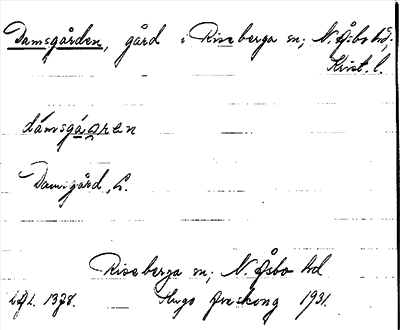 Damsgården, gård i Riseberga sn; N. Åsbo hd;
Krist. l.
dámsgáɑren
Damgård, L.
Riseberga sn; N. Åsbo hd
Hugo Areskoug 1931.